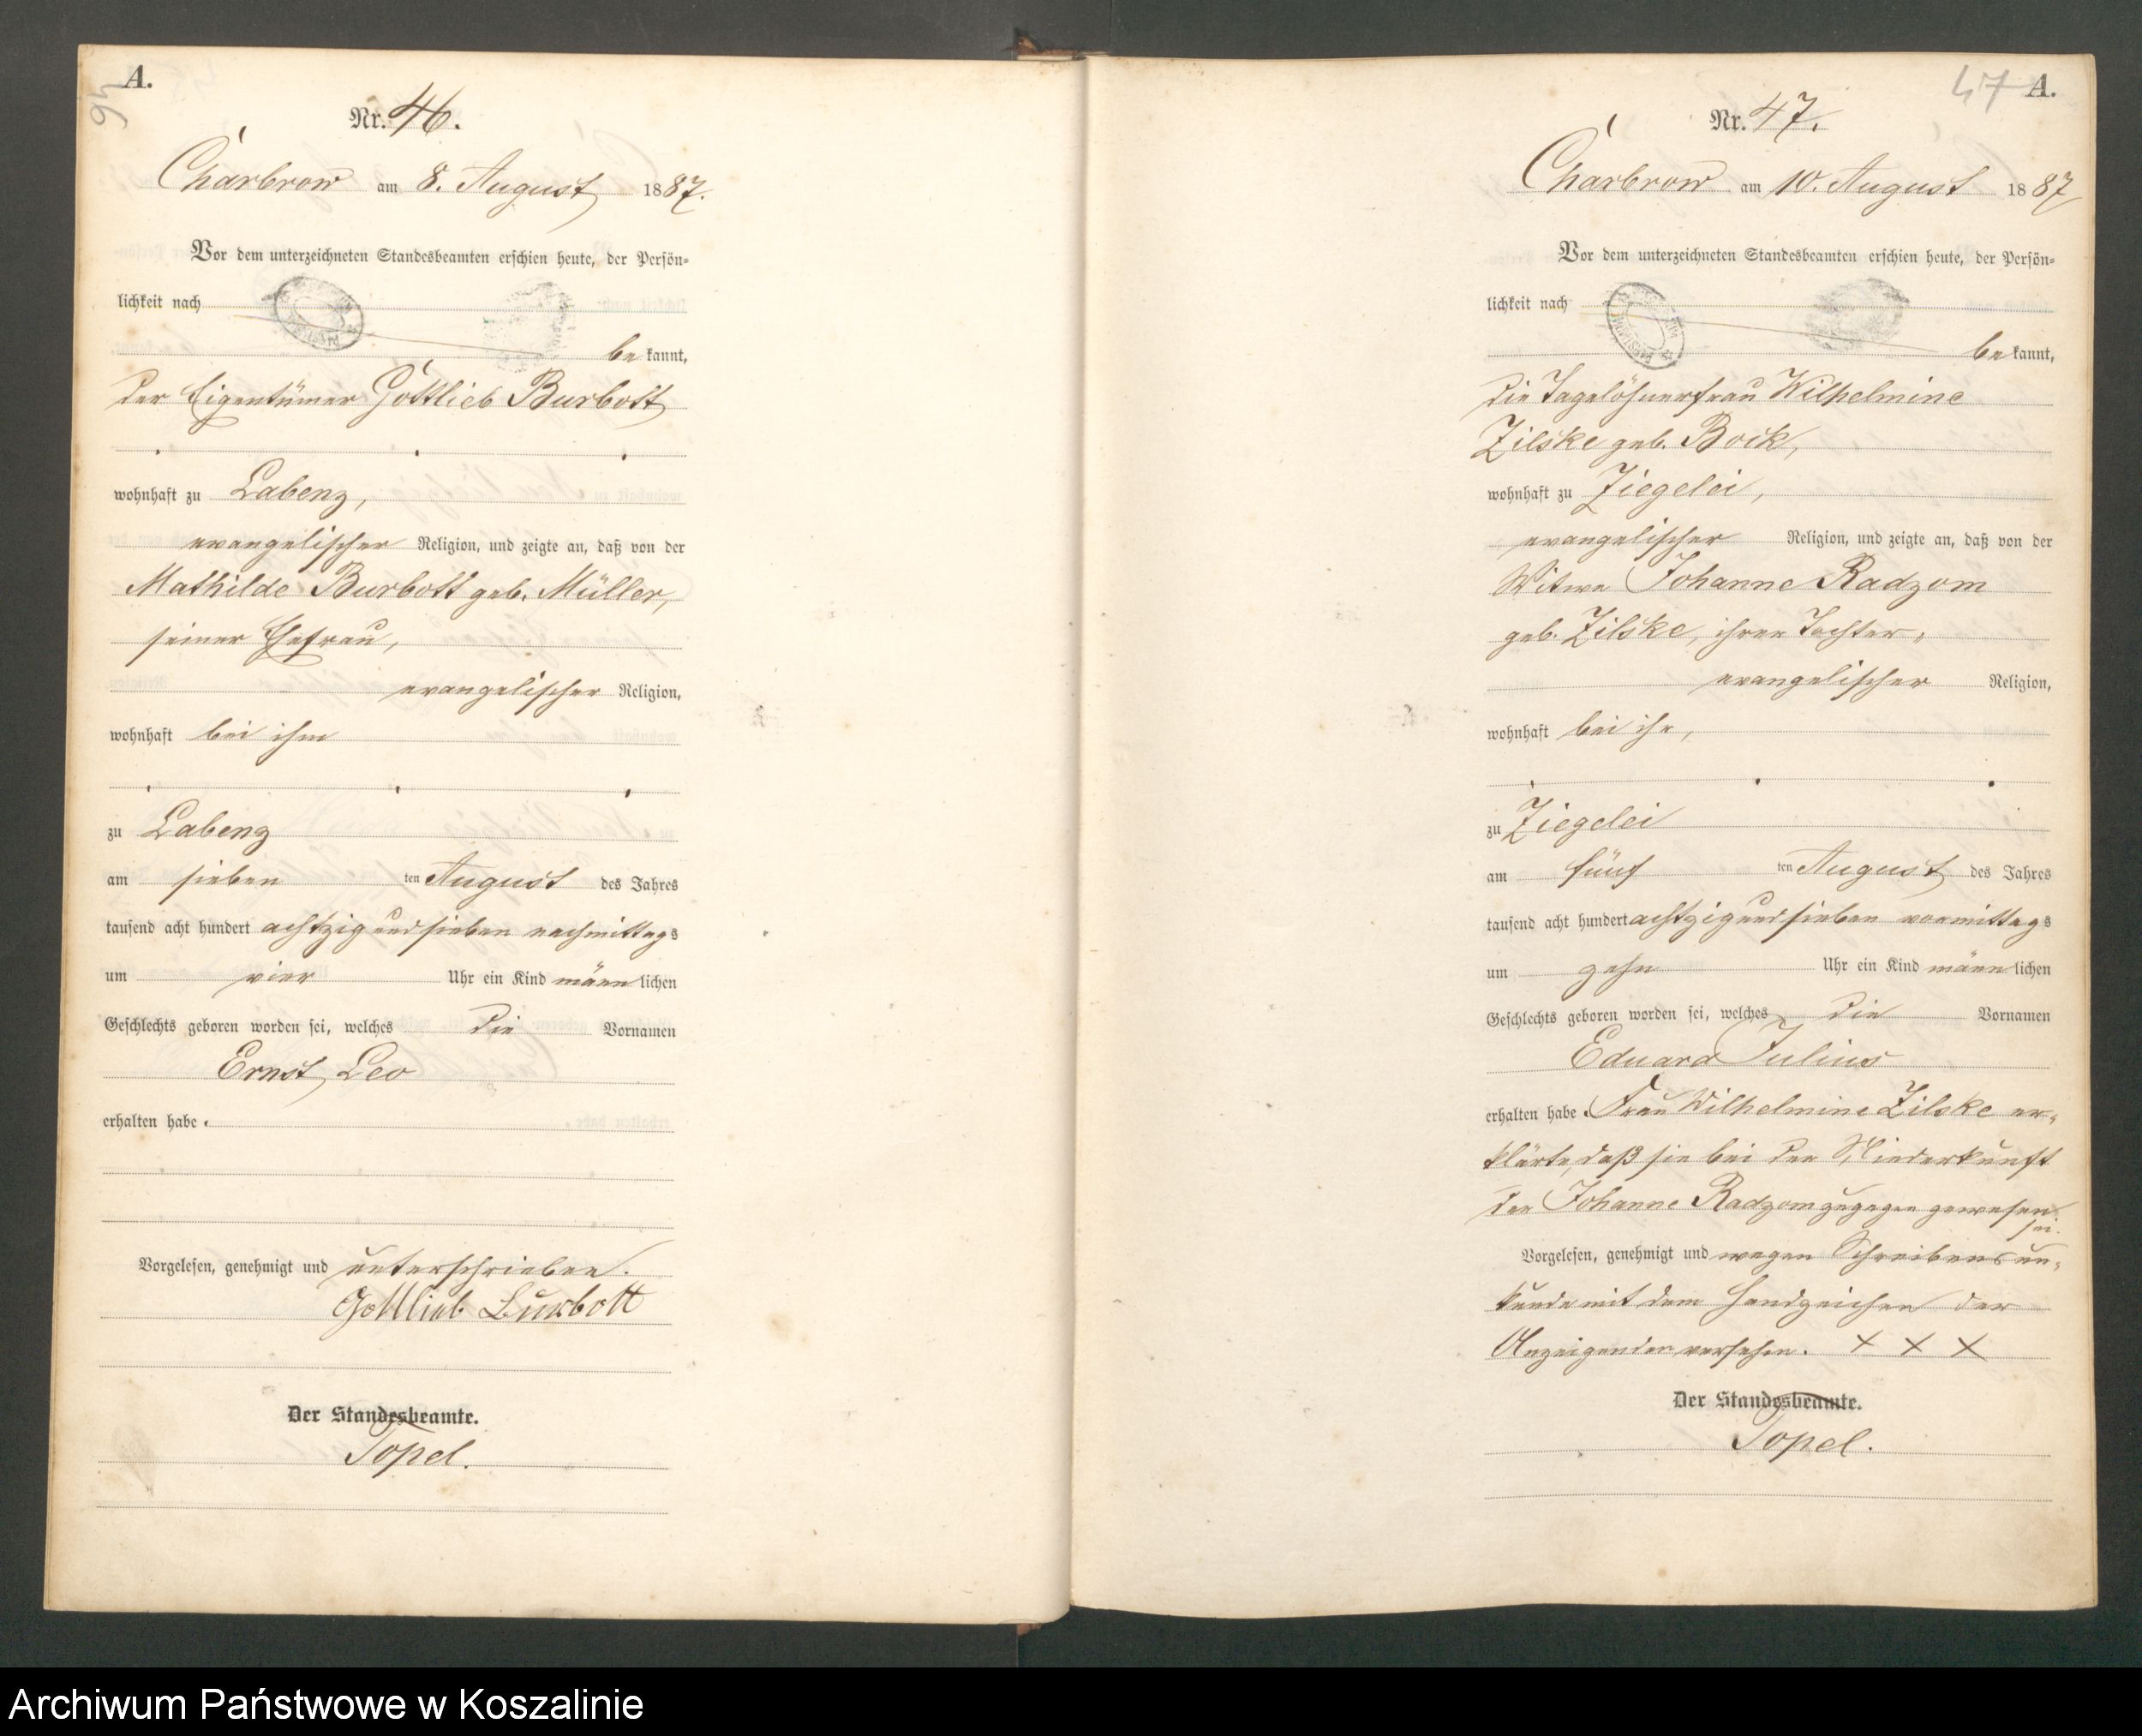 A.
46
Nr. 46.
Charbrow am 8. August 1887.
Vor dem unterzeichneten Standesbeamten erschien heute, der Persön-
lichkeit nach
bekannt,
der Eigentümer Gottlieb Burbott
wohnhaft zu Labenz,
evangelischer Religion, und zeigte an, daß von der
Mathilde Burbott geb. Müller,
seiner Ehefrau,
evangelischer Religion,
wohnhaft bei ihm
zu Labenz
am sieben ten August des Jahres
tausend acht hundert achtzig und sieben nachmittags
um vier Uhr ein Kind männlichen
Geschlechts geboren worden sei, welches die Vornamen
Ernst Leo
erhalten habe.
Vorgelesen, genehmigt und unterschrieben.
Gottlieb Burbott
Der Standesbeamte.
Topel.
47 A.
Nr. 47.
Charbrow am 10. August 1887
Vor dem unterzeichneten Standesbeamten erschien heute, der Persön-
lichkeit nach
bekannt,
die Tagelöhnerfrau Wilhelmine
Zilske geb. Bock,
wohnhaft zu Ziegelei,
evangelischer Religion, und zeigte an, daß von der
Witwe Johanne Radzom
geb. Zilske, ihrer Tochter,
evangelischer Religion,
wohnhaft bei ihr,
zu Ziegelei
am fünf ten August des Jahres
tausend acht hundert achtzig und sieben vormittags
um zehn Uhr ein Kind männlichen
Geschlechts geboren worden sei, welches die Vornamen
Eduard Julius
erhalten habe. Frau Wilhelmine Zilske er-
klärte, daß sie bei der Niederkunft
der Johanne Radzom zugegen gewesen
sei.
Vorgelesen, genehmigt und wegen Schreibensun-
kunde mit dem Handzeichen der
Anzeigenden versehen. X X X
Der Standesbeamte.
Topel.
Archiwum Państwowe w Koszalinie